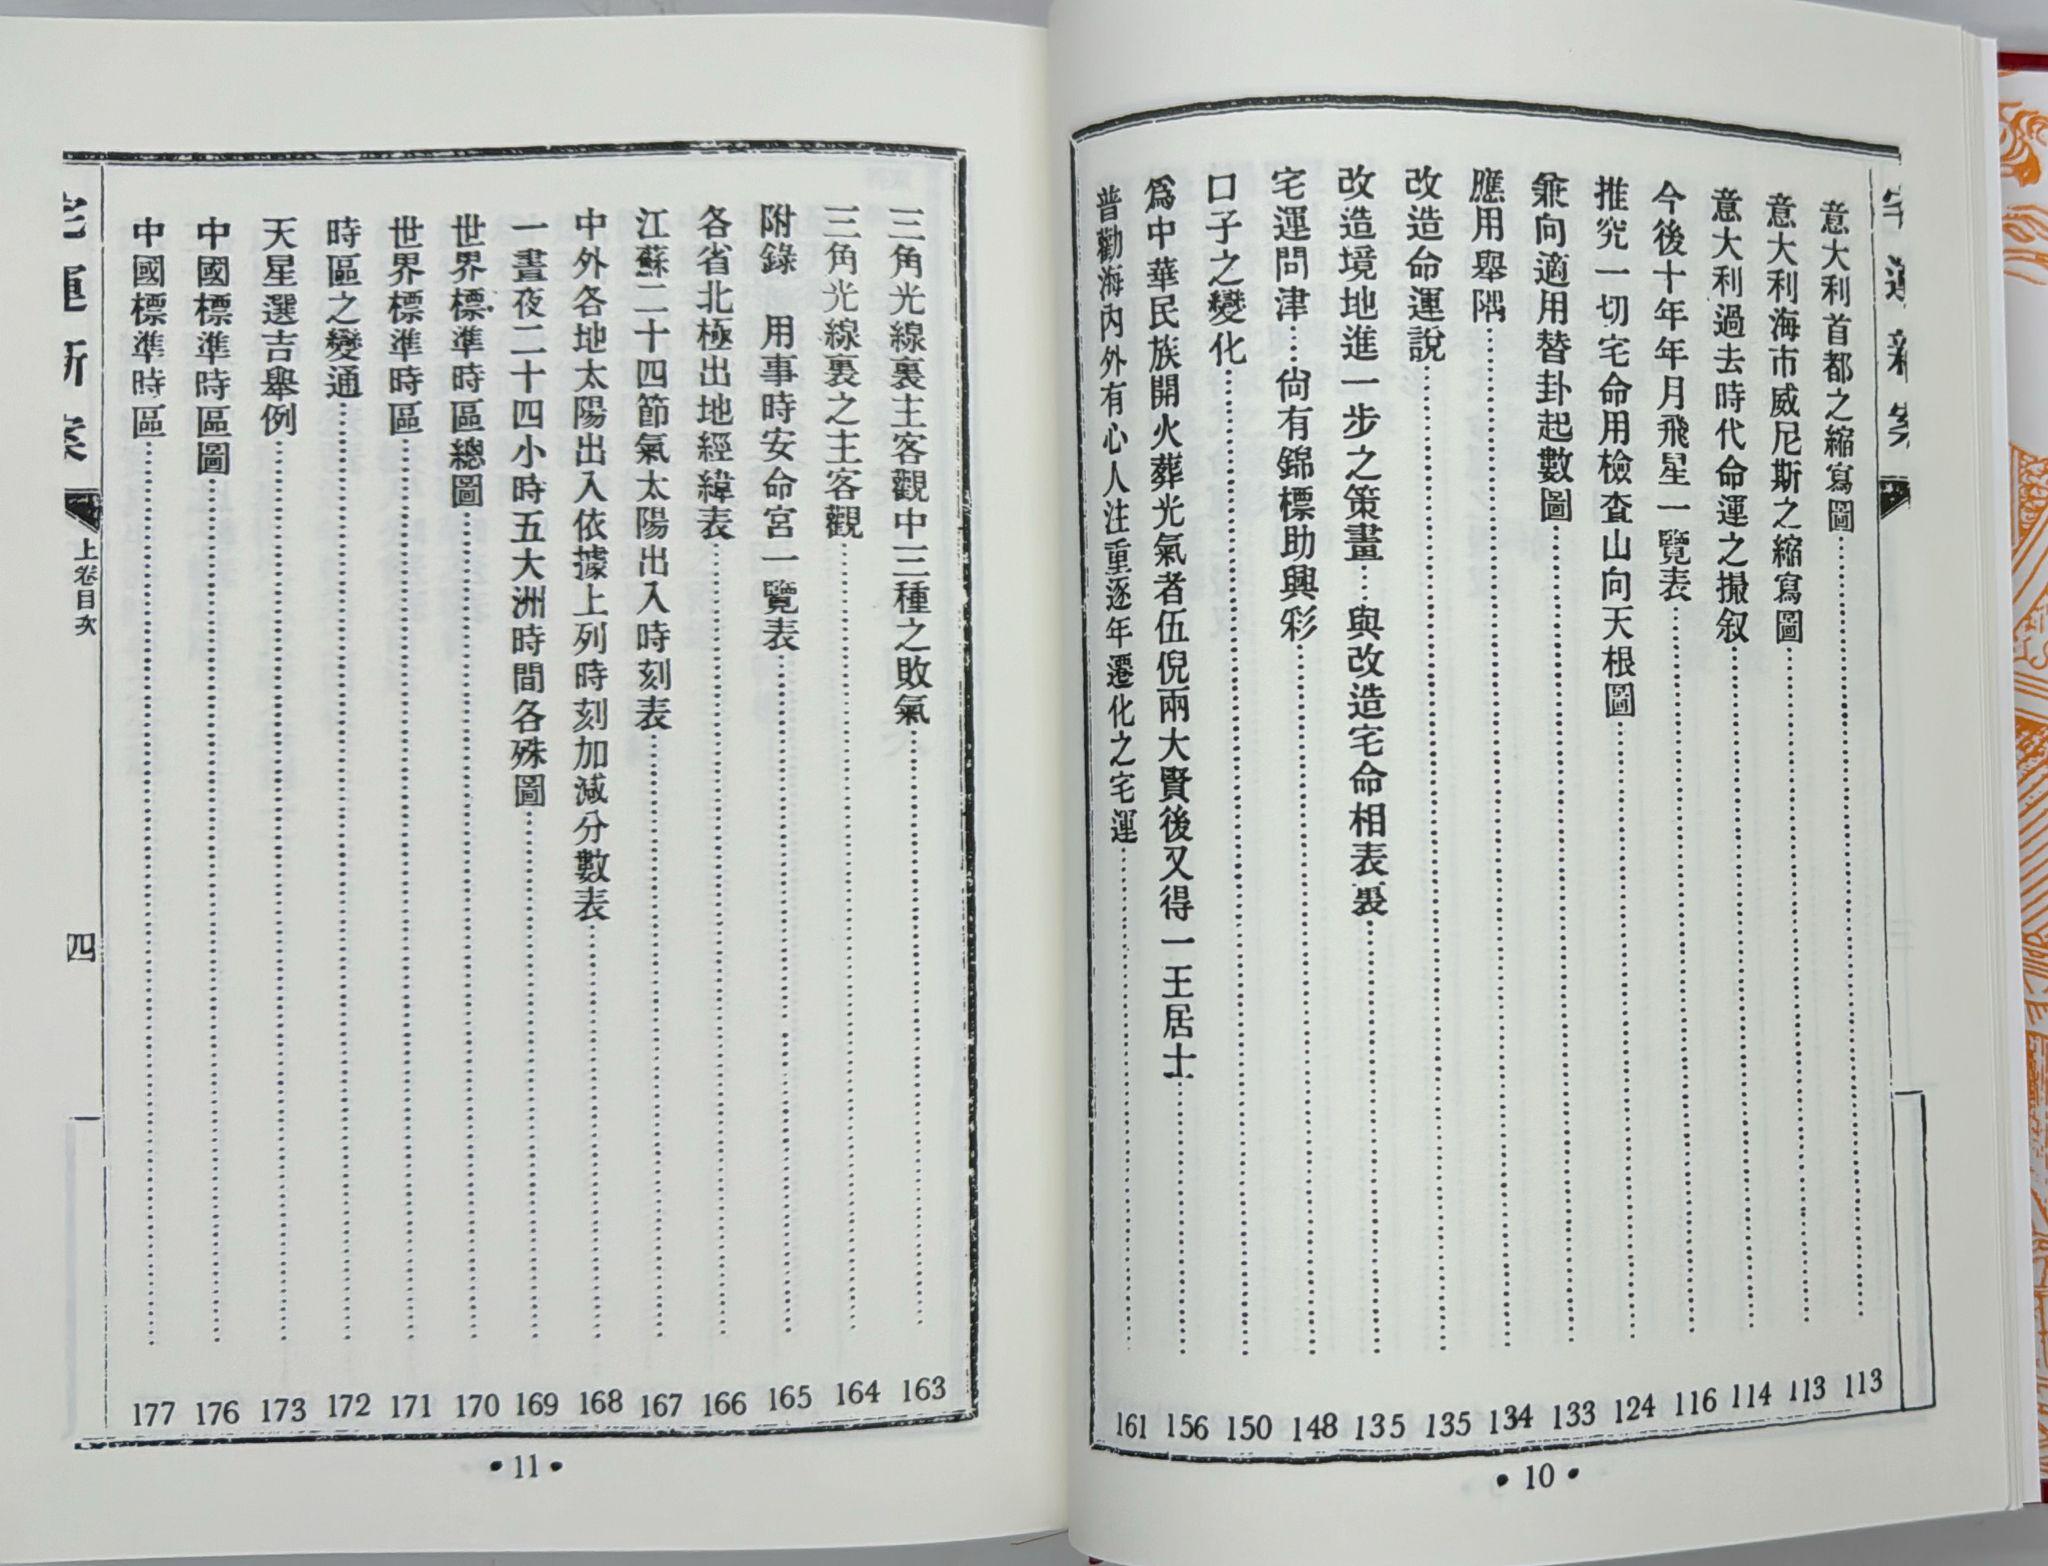 宅運新案
意大利首都之縮寫圖……113
意大利海市威尼斯之縮寫圖……113
意大利過去時代命運之撮叙……114
今後十年年月飛星一覽表……116
推究一切宅命用檢查山向天根圖……124
兼向適用替卦起數圖……133
應用舉隅……134
改造命運說……135
改造境地進一步之策畫…與改造宅命相表裏……135
宅運問津…尙有錦標助興彩……148
口子之變化……150
爲中華民族開火葬光氣者伍倪兩大賢後又得一王居士……156
普勸海內外有心人注重逐年遷化之宅運……161
• 10 •
三角光線裏主客觀中三種之敗氣……163
三角光線裏之主客觀……164
附錄 用事時安命宮一覽表……165
各省北極出地經緯表……166
江蘇二十四節氣太陽出入時刻表……167
中外各地太陽出入依據上列時刻加減分數表……168
一晝夜二十四小時五大洲時間各殊圖……169
世界標準時區總圖……170
世界標準時區……171
時區之變通……172
天星選吉舉例……173
中國標準時區圖……176
中國標準時區……177
宅運新案
上卷目次
四
• 11 •